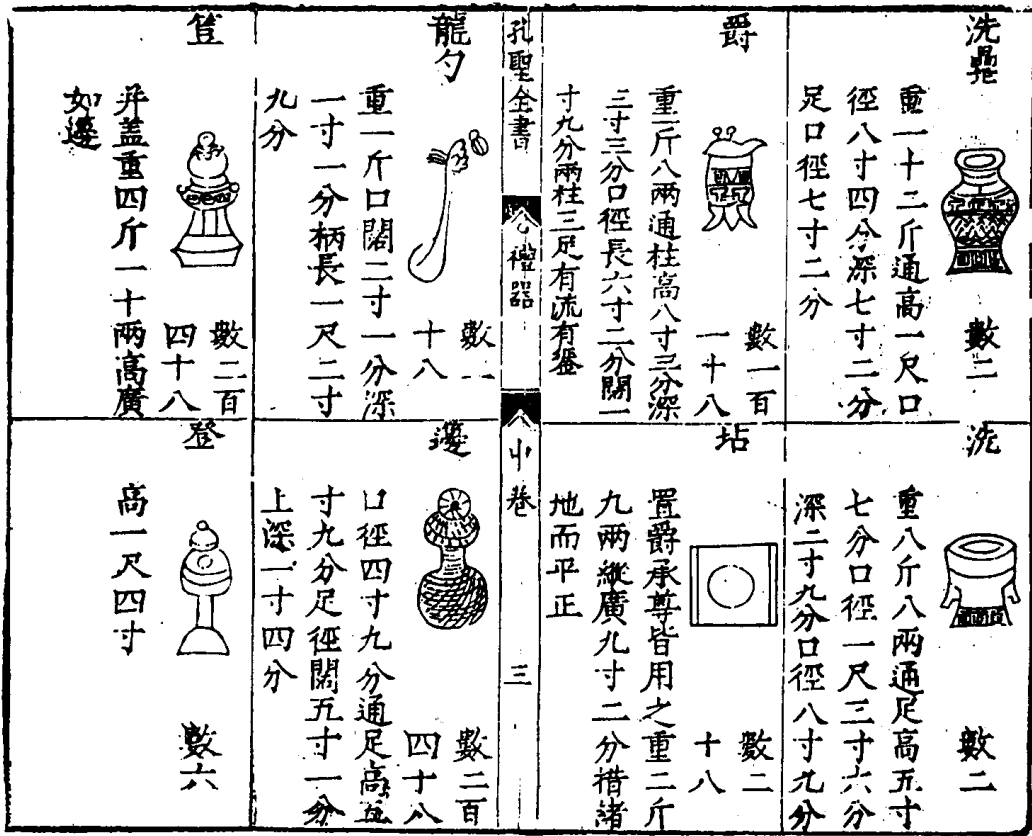 洗罍
數二
重一十二斤通高一尺口
徑八寸四分深七寸二分
足口徑七寸二分
洗
數二
重八斤八兩通足高五寸
七分口徑一尺三寸六分
深二寸九分口徑八寸九分
爵
數一百
一十八
重一斤八兩通柱高八寸三分深
三寸三分口徑長六寸二分闊一
寸九分兩柱三足有流有鋬
坫
數二
十八
置爵承尊皆用之重二斤
九兩縱廣九寸二分措諸
地而平正
孔聖全書
禮器
中卷
三
龍勺
數一
十八
重一斤口闊二寸一分深
一寸一分柄長一尺二寸
九分
籩
數二百
四十八
口徑四寸九分通足高五
寸九分足徑闊五寸一分
上深一寸四分
豆
數二百
四十八
并盖重四斤一十兩高廣
如籩
登
數六
高一尺四寸